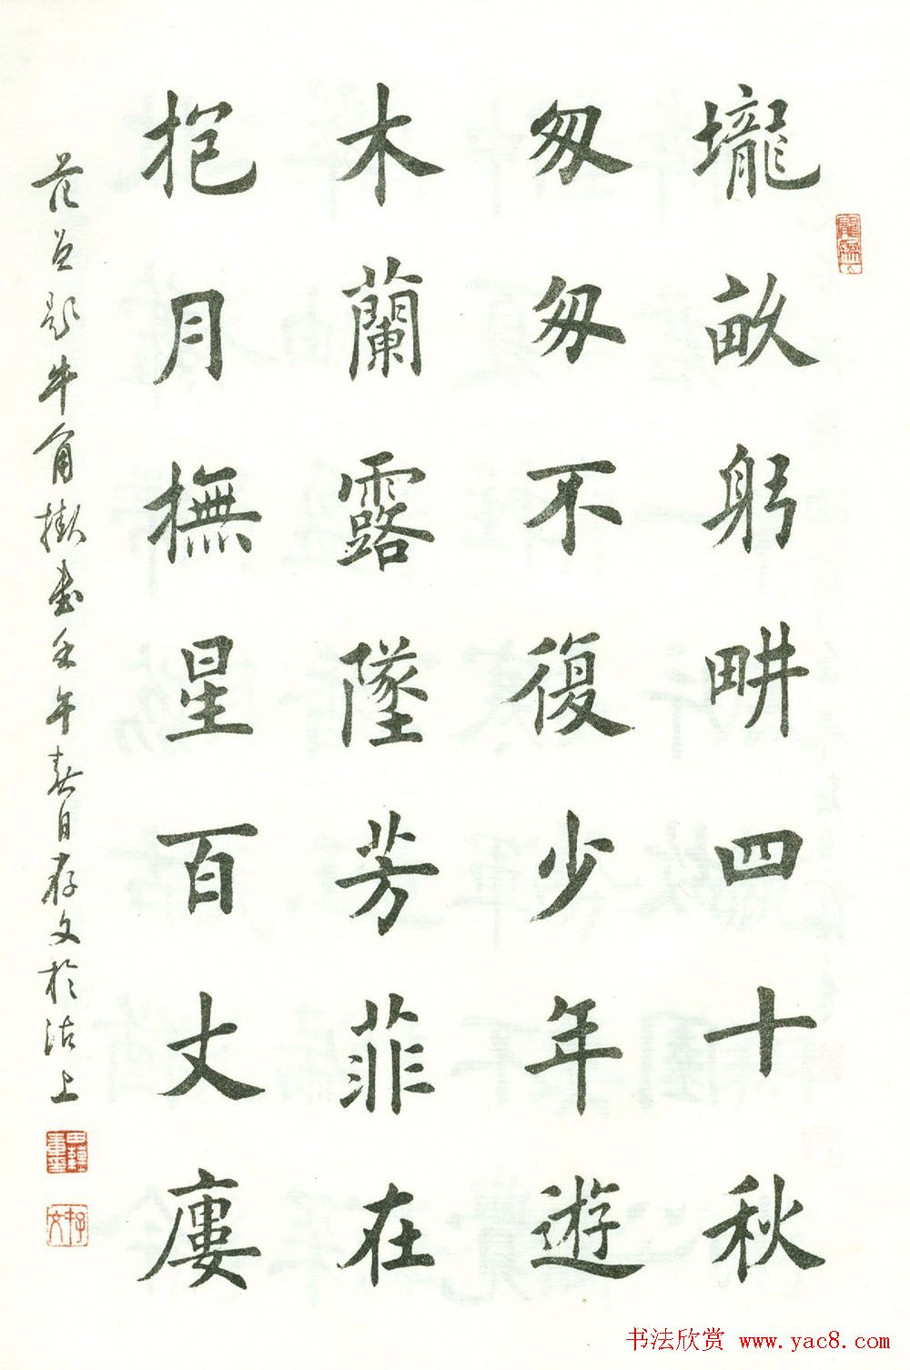 壠畝躬畊四十秋
匆匆不復少年遊
木蘭露墜芳菲在
抱月橅星百丈廔
范曾題牛角掛書壬午春日存文於沽上
存文
书法欣赏 www.yac8.com